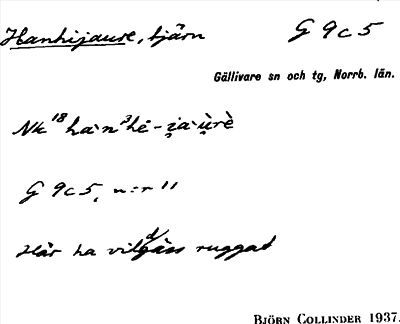 Hanhijaure, tjärn G 9 c 5
Gällivare sn och tg, Norrb. län.
Nk 18 ha·n³hē-i̯a·ùrè
G 9 c 5, n:r 11
Här ha vildgäss ruggat
BJÖRN COLLINDER 1937.